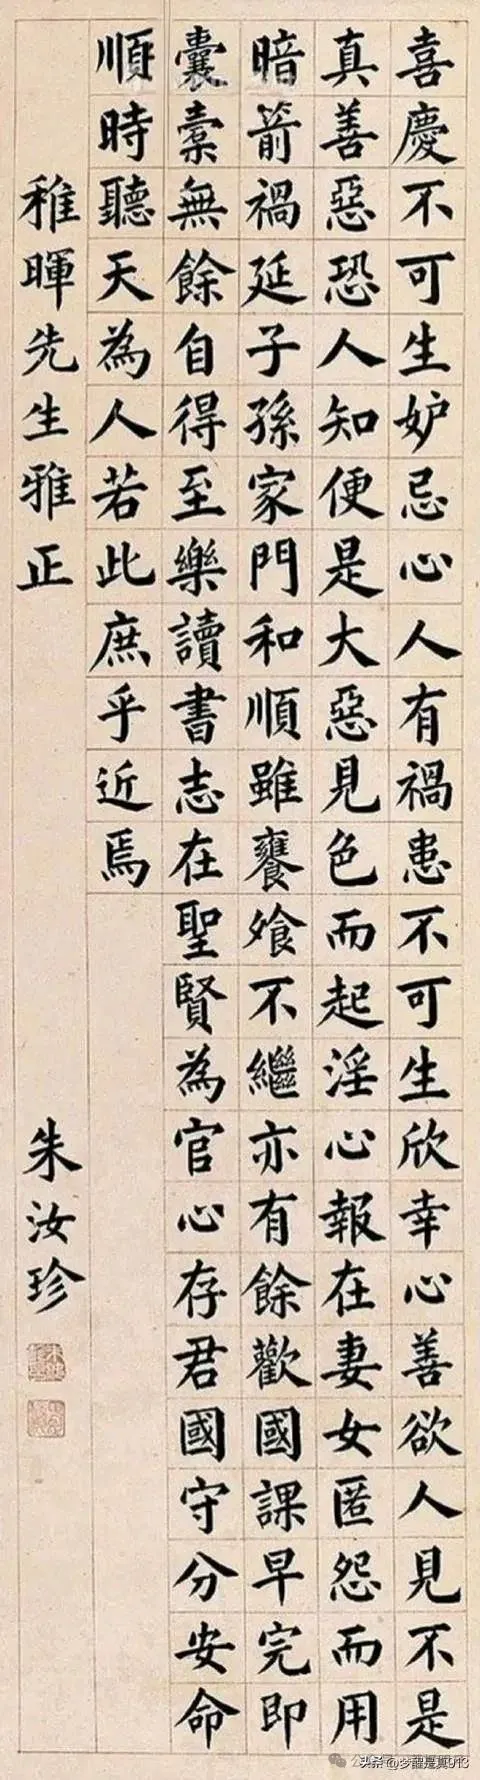 喜慶不可生妒忌心人有禍患不可生欣幸心善欲人見不是
真善惡恐人知便是大惡見色而起淫心報在妻女匿怨而用
暗箭禍延子孫家門和順雖饔飧不繼亦有餘歡國課早完即
囊橐無餘自得至樂讀書志在聖賢為官心存君國守分安命
順時聽天為人若此庶乎近焉
稚暉先生雅正
朱汝珍
头条 @梦醒是真913